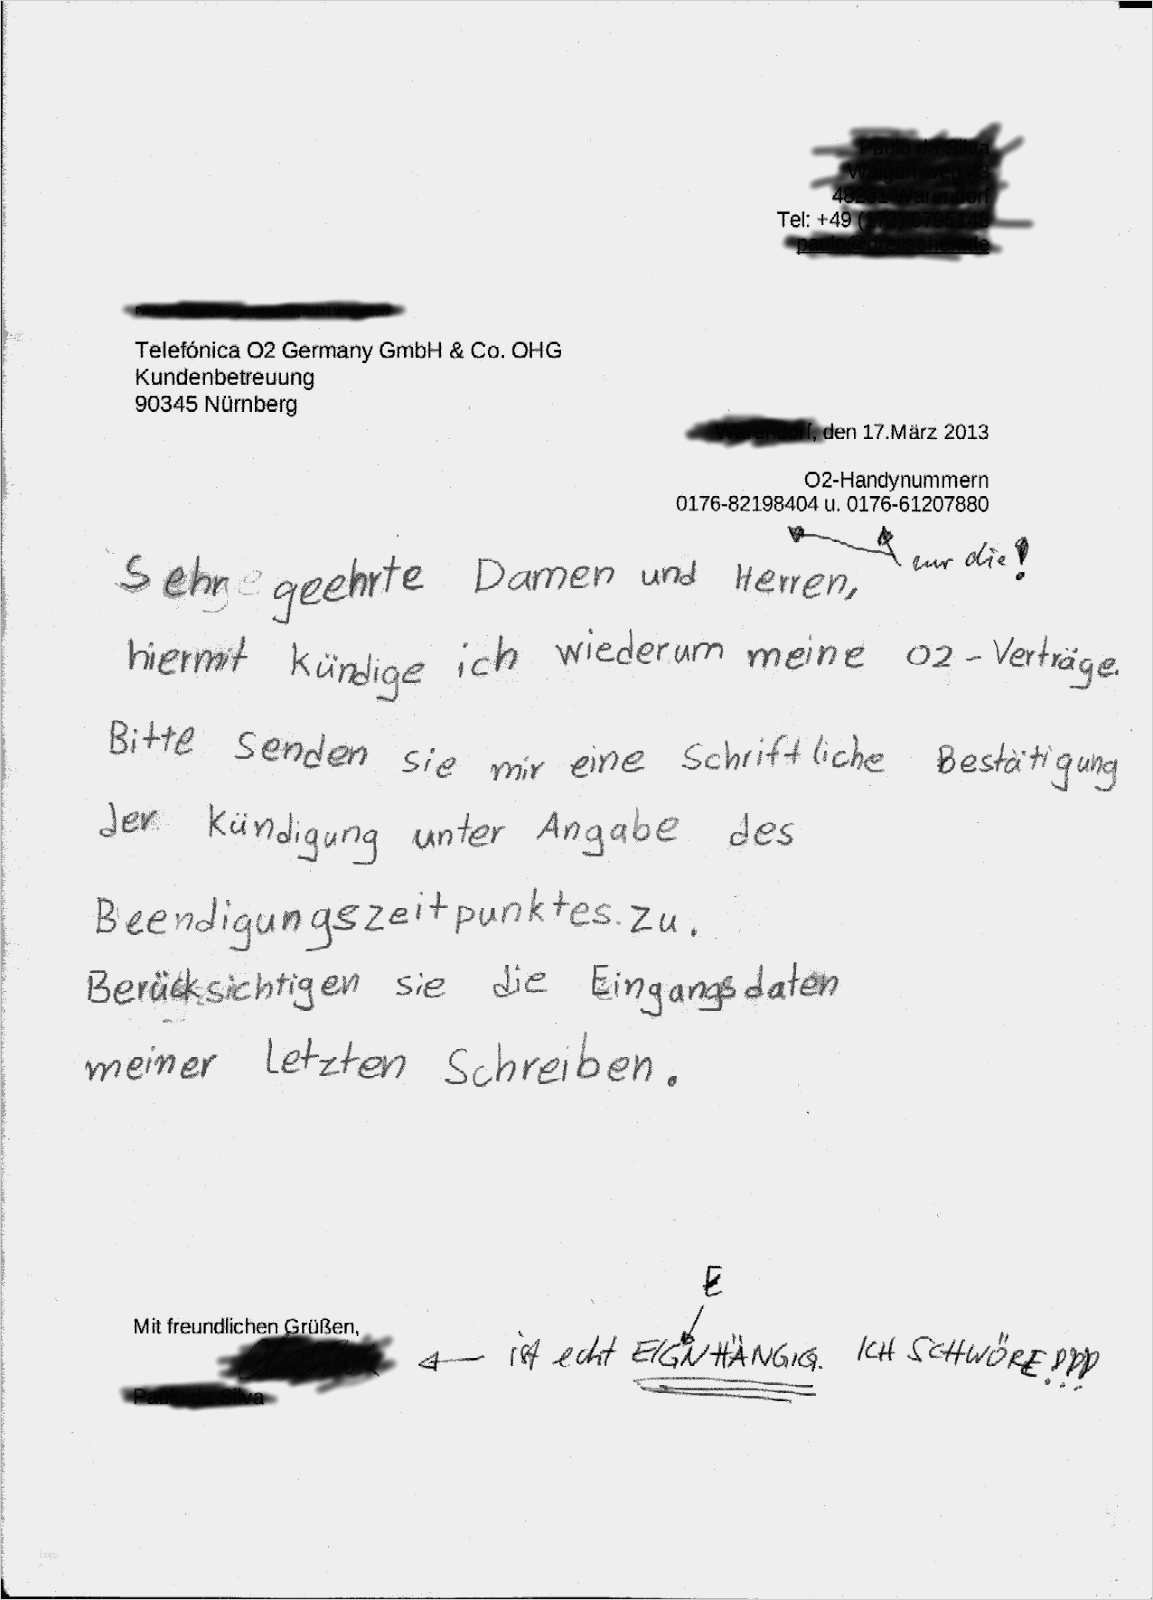 Tel: +49
Telefónica O2 Germany GmbH & Co. OHG
Kundenbetreuung
90345 Nürnberg
den 17.März 2013
O2-Handynummern
0176-82198404 u. 0176-61207880
nur die!
Sehr geehrte Damen und Herren,
hiermit kündige ich wiederum meine O2-Verträge.
Bitte senden sie mir eine Schriftliche Bestätigung
der Kündigung unter Angabe des
Beendigungszeitpunktes.zu.
Berücksichtigen sie die Eingangsdaten
meiner letzten Schreiben.
E
Mit freundlichen Grüßen,
ist echt EIGNHÄNGIG. ICH SCHWÖRE!!!